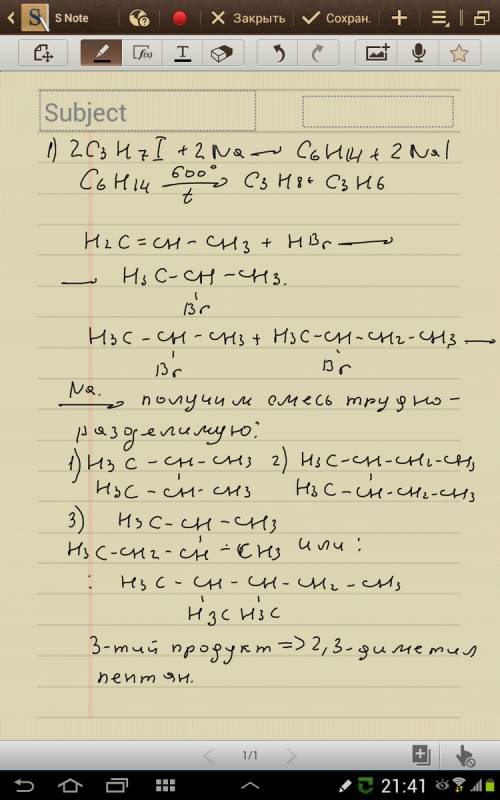 S Note
Закрыть
Сохран.
f(x)
T
Subject
1) 2C3H7I + 2Na → C6H14 + 2NaI
C6H14 600° → C3H8 + C3H6
t
H2C=CH-CH3 + HBr →
→ H3C-CH-CH3.
Br
H3C-CH-CH3 + H3C-CH-CH2-CH3 →
Br Br
Na. → получим смесь трудно-
разделимую:
1) H3C-CH-CH3 2) H3C-CH-CH2-CH3
H3C-CH-CH3 H3C-CH-CH2-CH3
3) H3C-CH-CH3
H3C-CH2-CH-CH3 или:
: H3C-CH-CH-CH2-CH3
H3C H3C
3-тий продукт => 2,3-диметил
пентан.
1/1
21:41